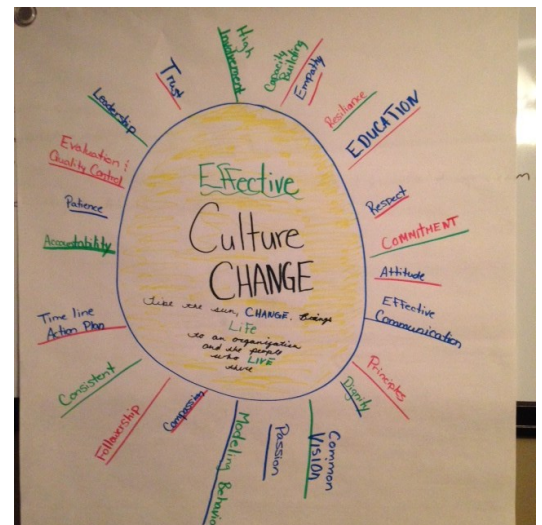 Effective
Culture
CHANGE
Like the sun, CHANGE, Brings
Life
to an organization
and the people
who LIVE
there
High
Involvement
Capacity
Building
Empathy
Resiliance
EDUCATION
Respect
COMMITMENT
Attitude
Effective
Communication
Principles
Dignity
Common
Vision
Passion
Modeling Behavio
Compassion
Followership
Consistent
Time line
Action Plan
Accountability
Patience
Evaluation &
Quality Control
Leadership
Trust